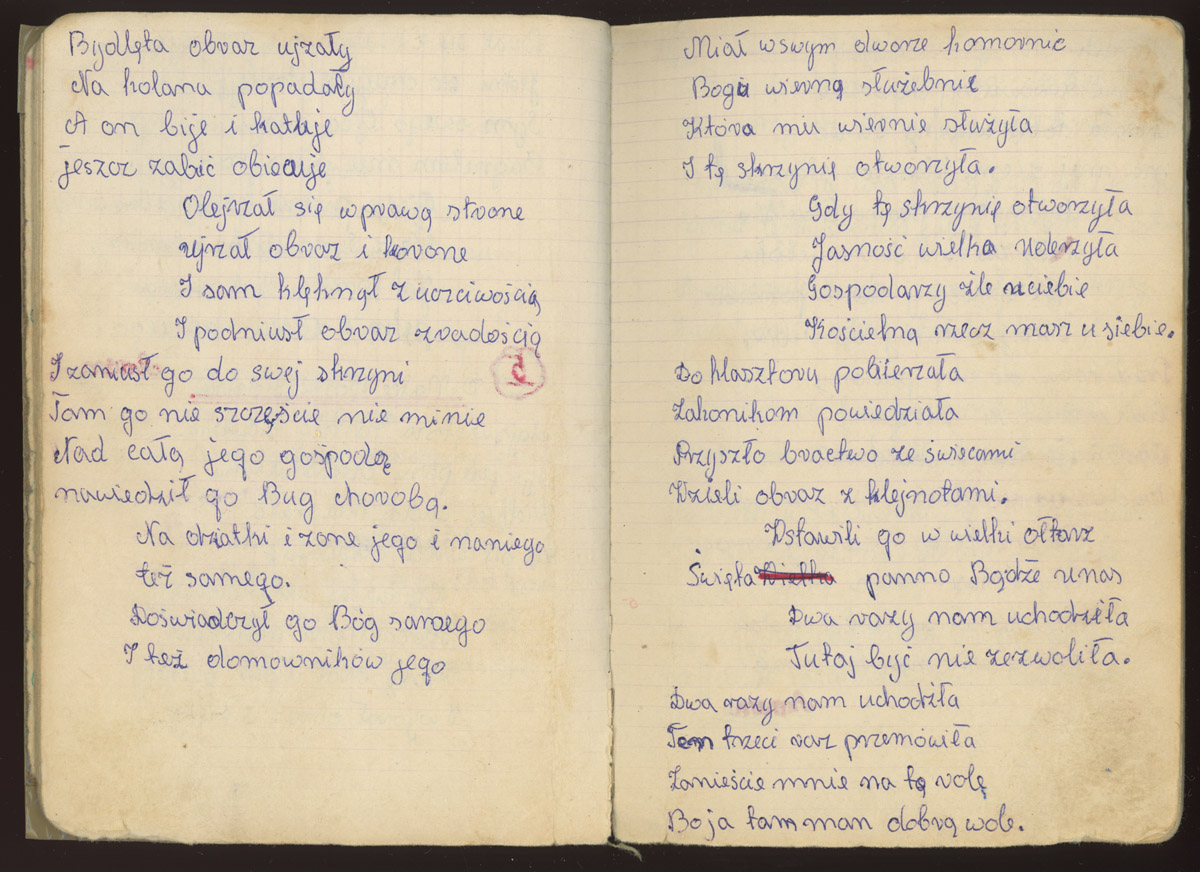 Bydlęta obraz ujzały
Na kolana popadały
A on bije i katuje
jeszcz zabić obiecuje
Olejrzał się wprawą strone
ujrzał obraz i korone
I sam klęknął z uczciwością
I podniusł obraz zradością
I zaniusł go do swej skrzyni
Tam go nie szczęście nie minie
Nad całą jego gospodą
nawiedził go Bug chorobą.
Na dziatki i zone jego i naniego
też samego.
Doświadczył go Bóg samego
I też domowników jego
Miał wswym dworze komornic
Bogu wierną służebnic
Która mu wiernie służyła
I tę skrzynię otworzyła.
Gdy tę skrzynię otworzyła
Jasność wielka uderzyła
Gospodarzy źle uciebie
Kościelną rzecz masz u siebie.
Do klasztoru pobierzała
Zakonikom powiedziała
Przyszło bractwo ze świecami
Wzieli obraz z klejnotami.
Wstawili go w wielki ołtarz
Święta Wielka panno Bądźe unas
Dwa razy nam uchodziła
Tutaj być nie zezwoliła.
Dwa razy nam uchodziła
Tem trzeci raz przemówiła
Zanieście mnie na tę rolę
Bo ja tam man dobrą wole.